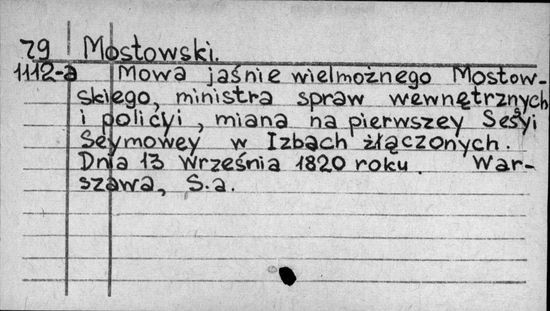 79 Mostowski.
1112-a Mowa jaśnie wielmożnego Mostow-
skiego, ministra spraw wewnętrznych
i policyi, miana na pierwszey Sesyi
Seymowey w Izbach żłączonych.
Dnia 13 Września 1820 roku. War-
szawa, S.a.